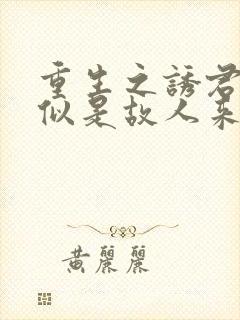 重生之誘君
似是故人來
黃麗麗